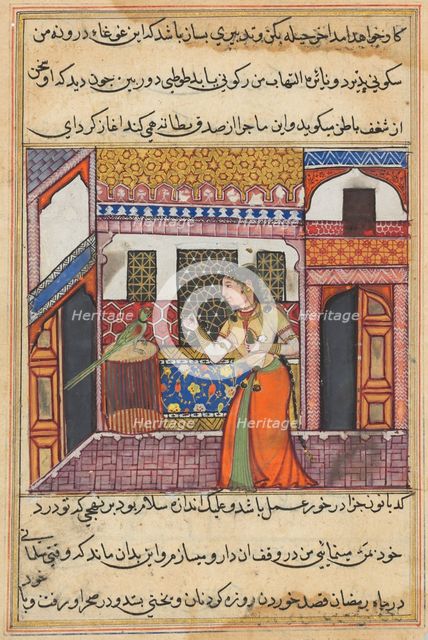 کار خواهد آمد اخر حیله بکن و تدبیری بساز باشد که این غوغاء درونه من
سکونی پذیرد و نائره التهاب من رکونی یابد طوطی دوربین چون دید که او سخن
از شغف باطن میکوید و این ماجرا از صدق بطانه همی کند اغاز کرد ای
heritage
Heritage
Heritage
Heritage
Heritage
Heritage
کدبانو جزا در خور عمل باشد و علیک اندازه سلام بود بر نهجی که تو درد
خود بمن مینمائی من در وفق آن دارو میسازم و این بدان ماند که وقتی
در ماه رمضان قصد خوردن روزه کرد نان و پختی بستد و در صحرا رفت و با خود